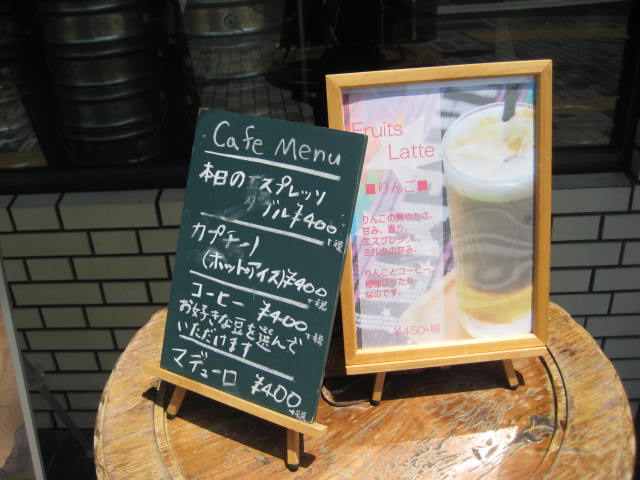 Cafe Menu
本日のエスプレッソ
ダブル ¥400
+税
カプチーノ
(ホットorアイス) ¥400
+税
コーヒー ¥400
+税
お好きな豆を選んで
いただけます
マデューロ ¥400
+税
Fruits
Latte
■りんご■
りんごの爽やかさ、
甘み、香り。
エスプレッソ、
ミルクの甘み。
りんごとコーヒー
相性ぴったり
なのです。
¥450+税